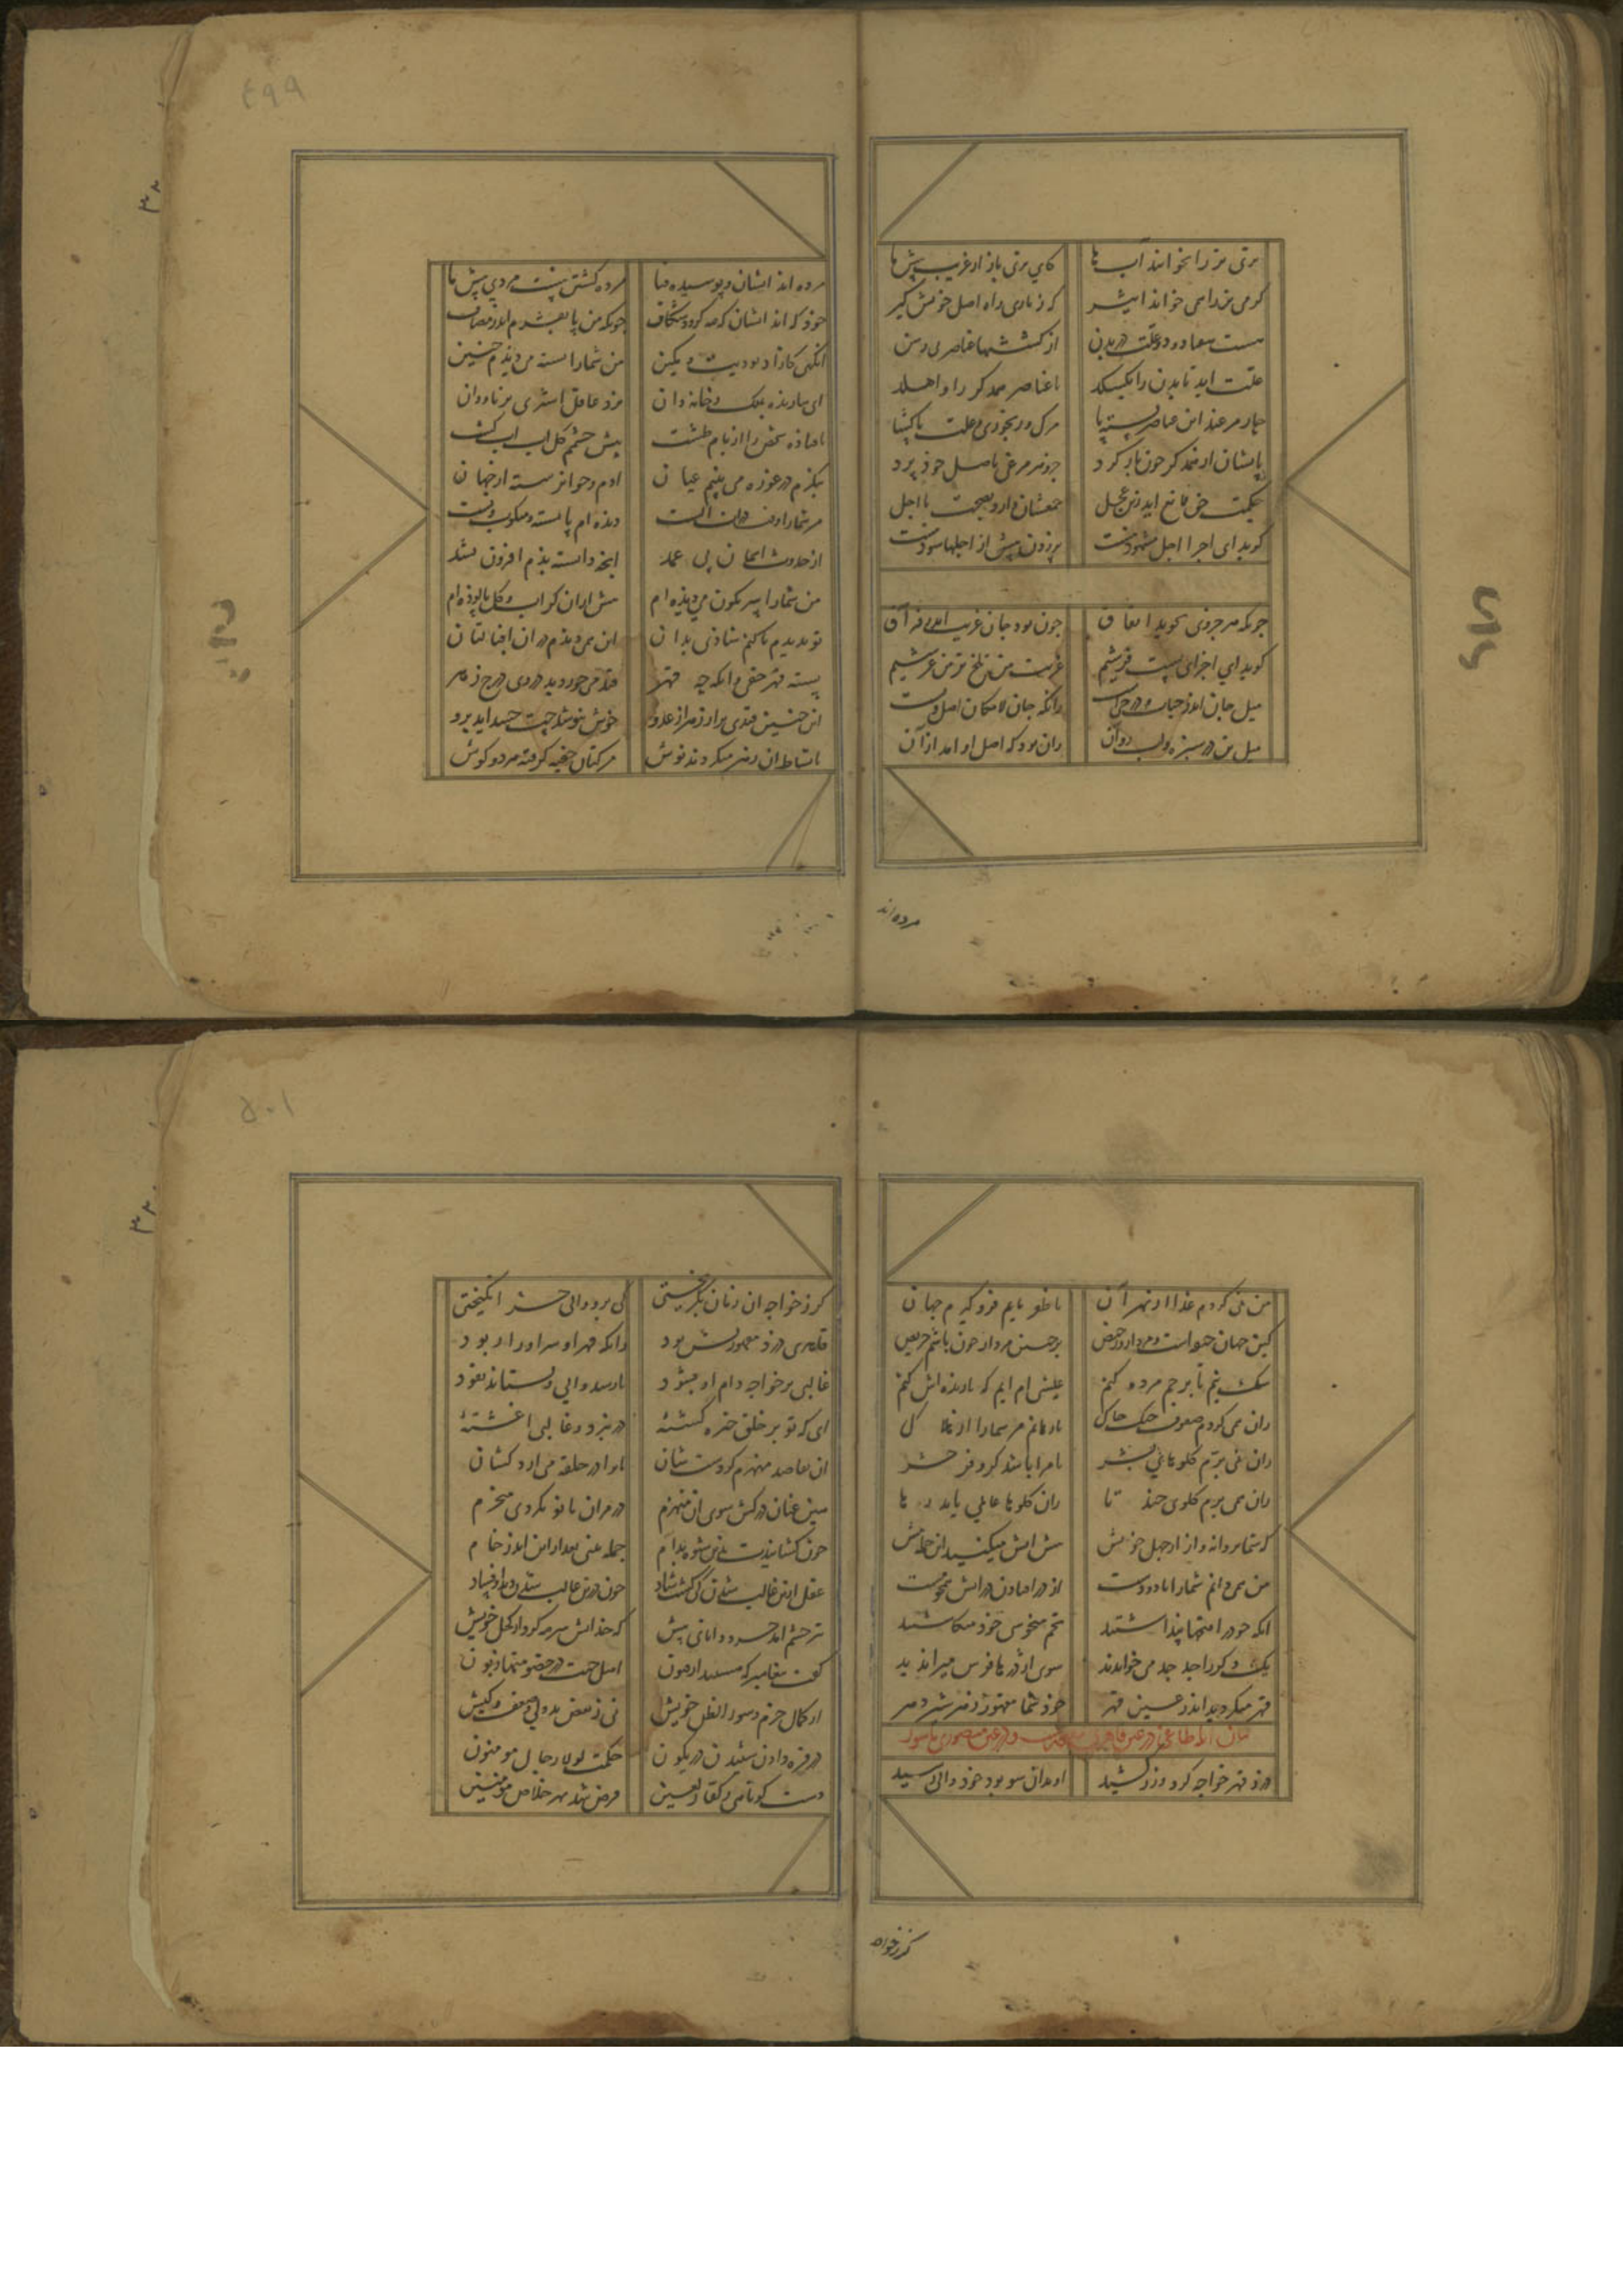 تری تن را بخوانند آب ها   کای تری باز ا ز غربت پیش ما
گرمی تن را همی خواند اثیر   که ز ناری راه اصل خویش گیر
هست هفتاد و دو علت در بدن   از کششهای عناصر بی رسن
علت اید تا بدن را بگسلد   تا عناصر همدگر را واهلد
چار مرغند این عناصر بسته پا   مرگ و رنجوری و علت پاگشا
پایشان از همدگر چون باز کرد   مرغی باصل خود پرد
حکمت حق مانع اید زین عجل   جمعشان دارد بصحت تا اجل
گوید ای اجزا اجل مشهود نیست   پر زدن پیش از اجلها سود نیست
چونکه هر جزوی بجوید اتفاق   چون بود جان غریب اندر فراق
گوید ای اجزای پست فرشیم   غربت من تلخ تر من عرشیم
میل جان اندر حیات و در حی است   زانکه جان لامکان اصل ویست
میل تن در سبزه و اب روان   زان بود که اصل او امد از آن
مرده اند
٤٩٩
مرده اند ایشان و پوسیده فنا   مرده کشتن نیست مردی پیش ما
خود که اند ایشان که مه گردد شکاف   چونکه من پا بفشرم اندر مصاف
انگهی کازاد بودیت و مکین   من شما را بسته می دیدم چنین
ای بنازیده بملک و خاندان   نزد عاقل اشتری بر ناودان
تا فتاده نقش را از بام طشت   پیش چشمم کل ات ات گشت
بنگرم در غوره می بینم عیان
ادم و حوا نرسته از جهان
مر شما را وقت ذرات الست   دیده ام پا بسته و منکوس و پست
از حدوث اسمان بی عمد   انچه دانسته بدم افزون نشد
من شما را سرنگون می دیده ام   پیش از ان کز اب و گل بالیده ام
نو ندیدم تا کنم شادی بدان   این همی دیدم در ان اقبالتان
بسته قهر خفی وانگه چه قهر   قند می خوردید و در وی درج زهر
این چنین قندی پر از زهر ار عدو   خوش بنوشد چت حسد اید برو
با نشاط ان زهر می کردند نوش   مرگتان خفیه گرفته هر دو گوش
من نمی کردم غزا از بهر آن   تا ظفر یابم فرو گیرم جهان
کین جهان جیفه است و مردار و رخیص   بر چنین مردار چون باشم حریص
سگ نیم تا پرچم مرده کنم   عیسی ام ایم که تا زنده اش کنم
زان همی کردم صفوف جنگ چاک   تا رهانم مر شما را از هلاک
زان نمی برم گلوهای بشر   تا مرا باشد کر و فر حشر
زان همی برم گلوی چند تا   زان گلوها عالمی یابد رها
که شما پروانه وار از جهل خویش   پیش اتش میکنید این حمله کیش
من همی رانم شما را با دو دست   از در افتادن در اتش
انکه خود را فتحها پنداشتید   تخم منحوسی خود میکاشتید
یک دگر را جد جد می خواندند   سوی اژدرها فرس میراندید
قهر میکردید اندر عین قهر   خود شما مقهور قهر شیر دهر
بیان انک طاغی در عین قاهری مقهورست و در عین منصوری ماسور
دزد قهر خواجه کرد و زر کشید   او بدان مشغول بود خود والی رسید
گر ز خواجه
٥٠١
گر ز خواجه ان زمان بگریختی   کی برو والی حشر انگیختی
قاهری دزد مقهوریش بود   زانکه قهر او سر او را ربود
غالبی بر خواجه دام او شود   تا رسد والی و بستاند قود
ای که تو بر خلق چیره گشته   در نبرد و غالبی اغشته
ان بقاصد منهزم کردستشان   تا ترا در حلقه می ارد کشان
هین عنان در کش سوی ان منهزم   در مران تا تو نگردی منخزم
چون کشانیدت بدین شیوه بدام   جمله بینی بعد از ان اندر زحام
عقل ازین غالب شدن کی گشت شاد   چون درین غالب شدن دید او فساد
تیز چشم امد خرد دانای پیش   که خدایش سرمه کرد از کحل خویش
گفت پیغامبر که هستند از فنون   اهل جنت در خصومتها زبون
از کمال حزم و سوء الظن خویش   نی ز نقص بددلی و ضعف کیش
در فره دادن شنیدن در کمون   حکمت لولا رجال مومنون
دست کوتاهی ز کفار لعین   فرض شد بهر خلاص مومنین